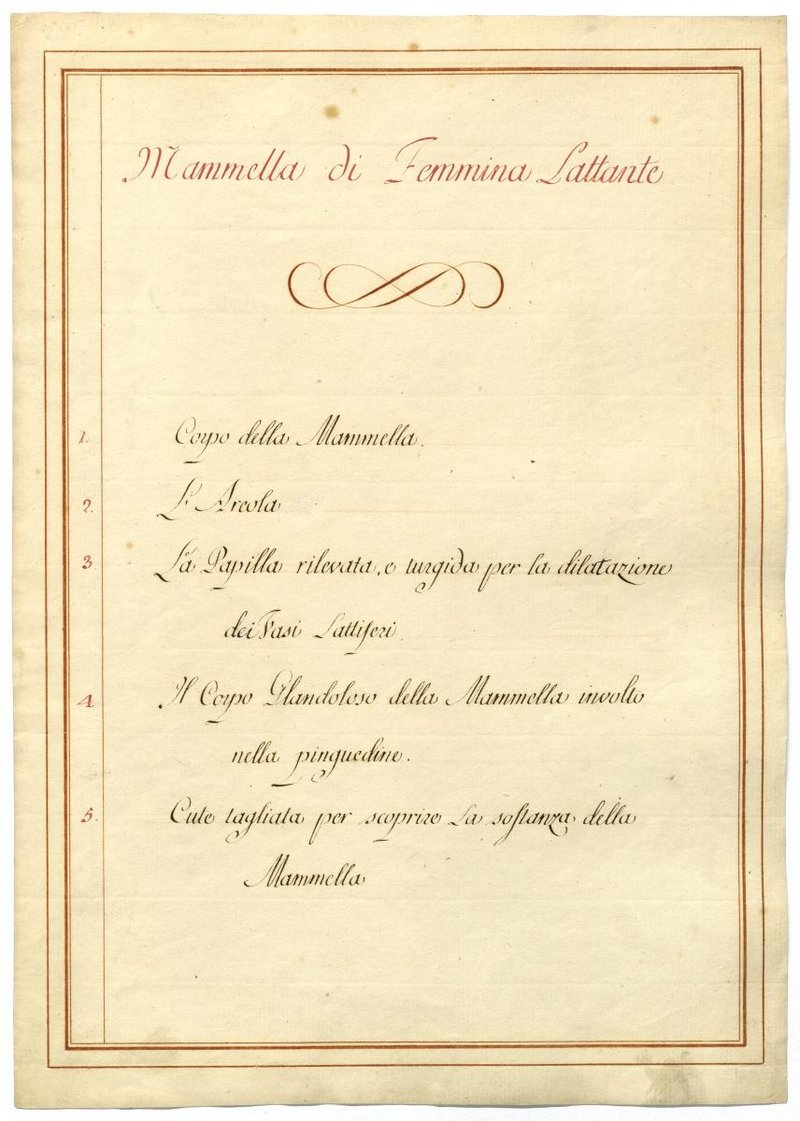 Mammella di Femmina Lattante
1. Corpo della Mammella.
2. L'Areola
3 La Papilla rilevata, e turgida per la dilatazione
dei Vasi Lattiferi.
4 Il Corpo Glandoloso della Mammella involto
nella pinguedine.
5. Cute tagliata per scoprire La sostanza della
Mammella